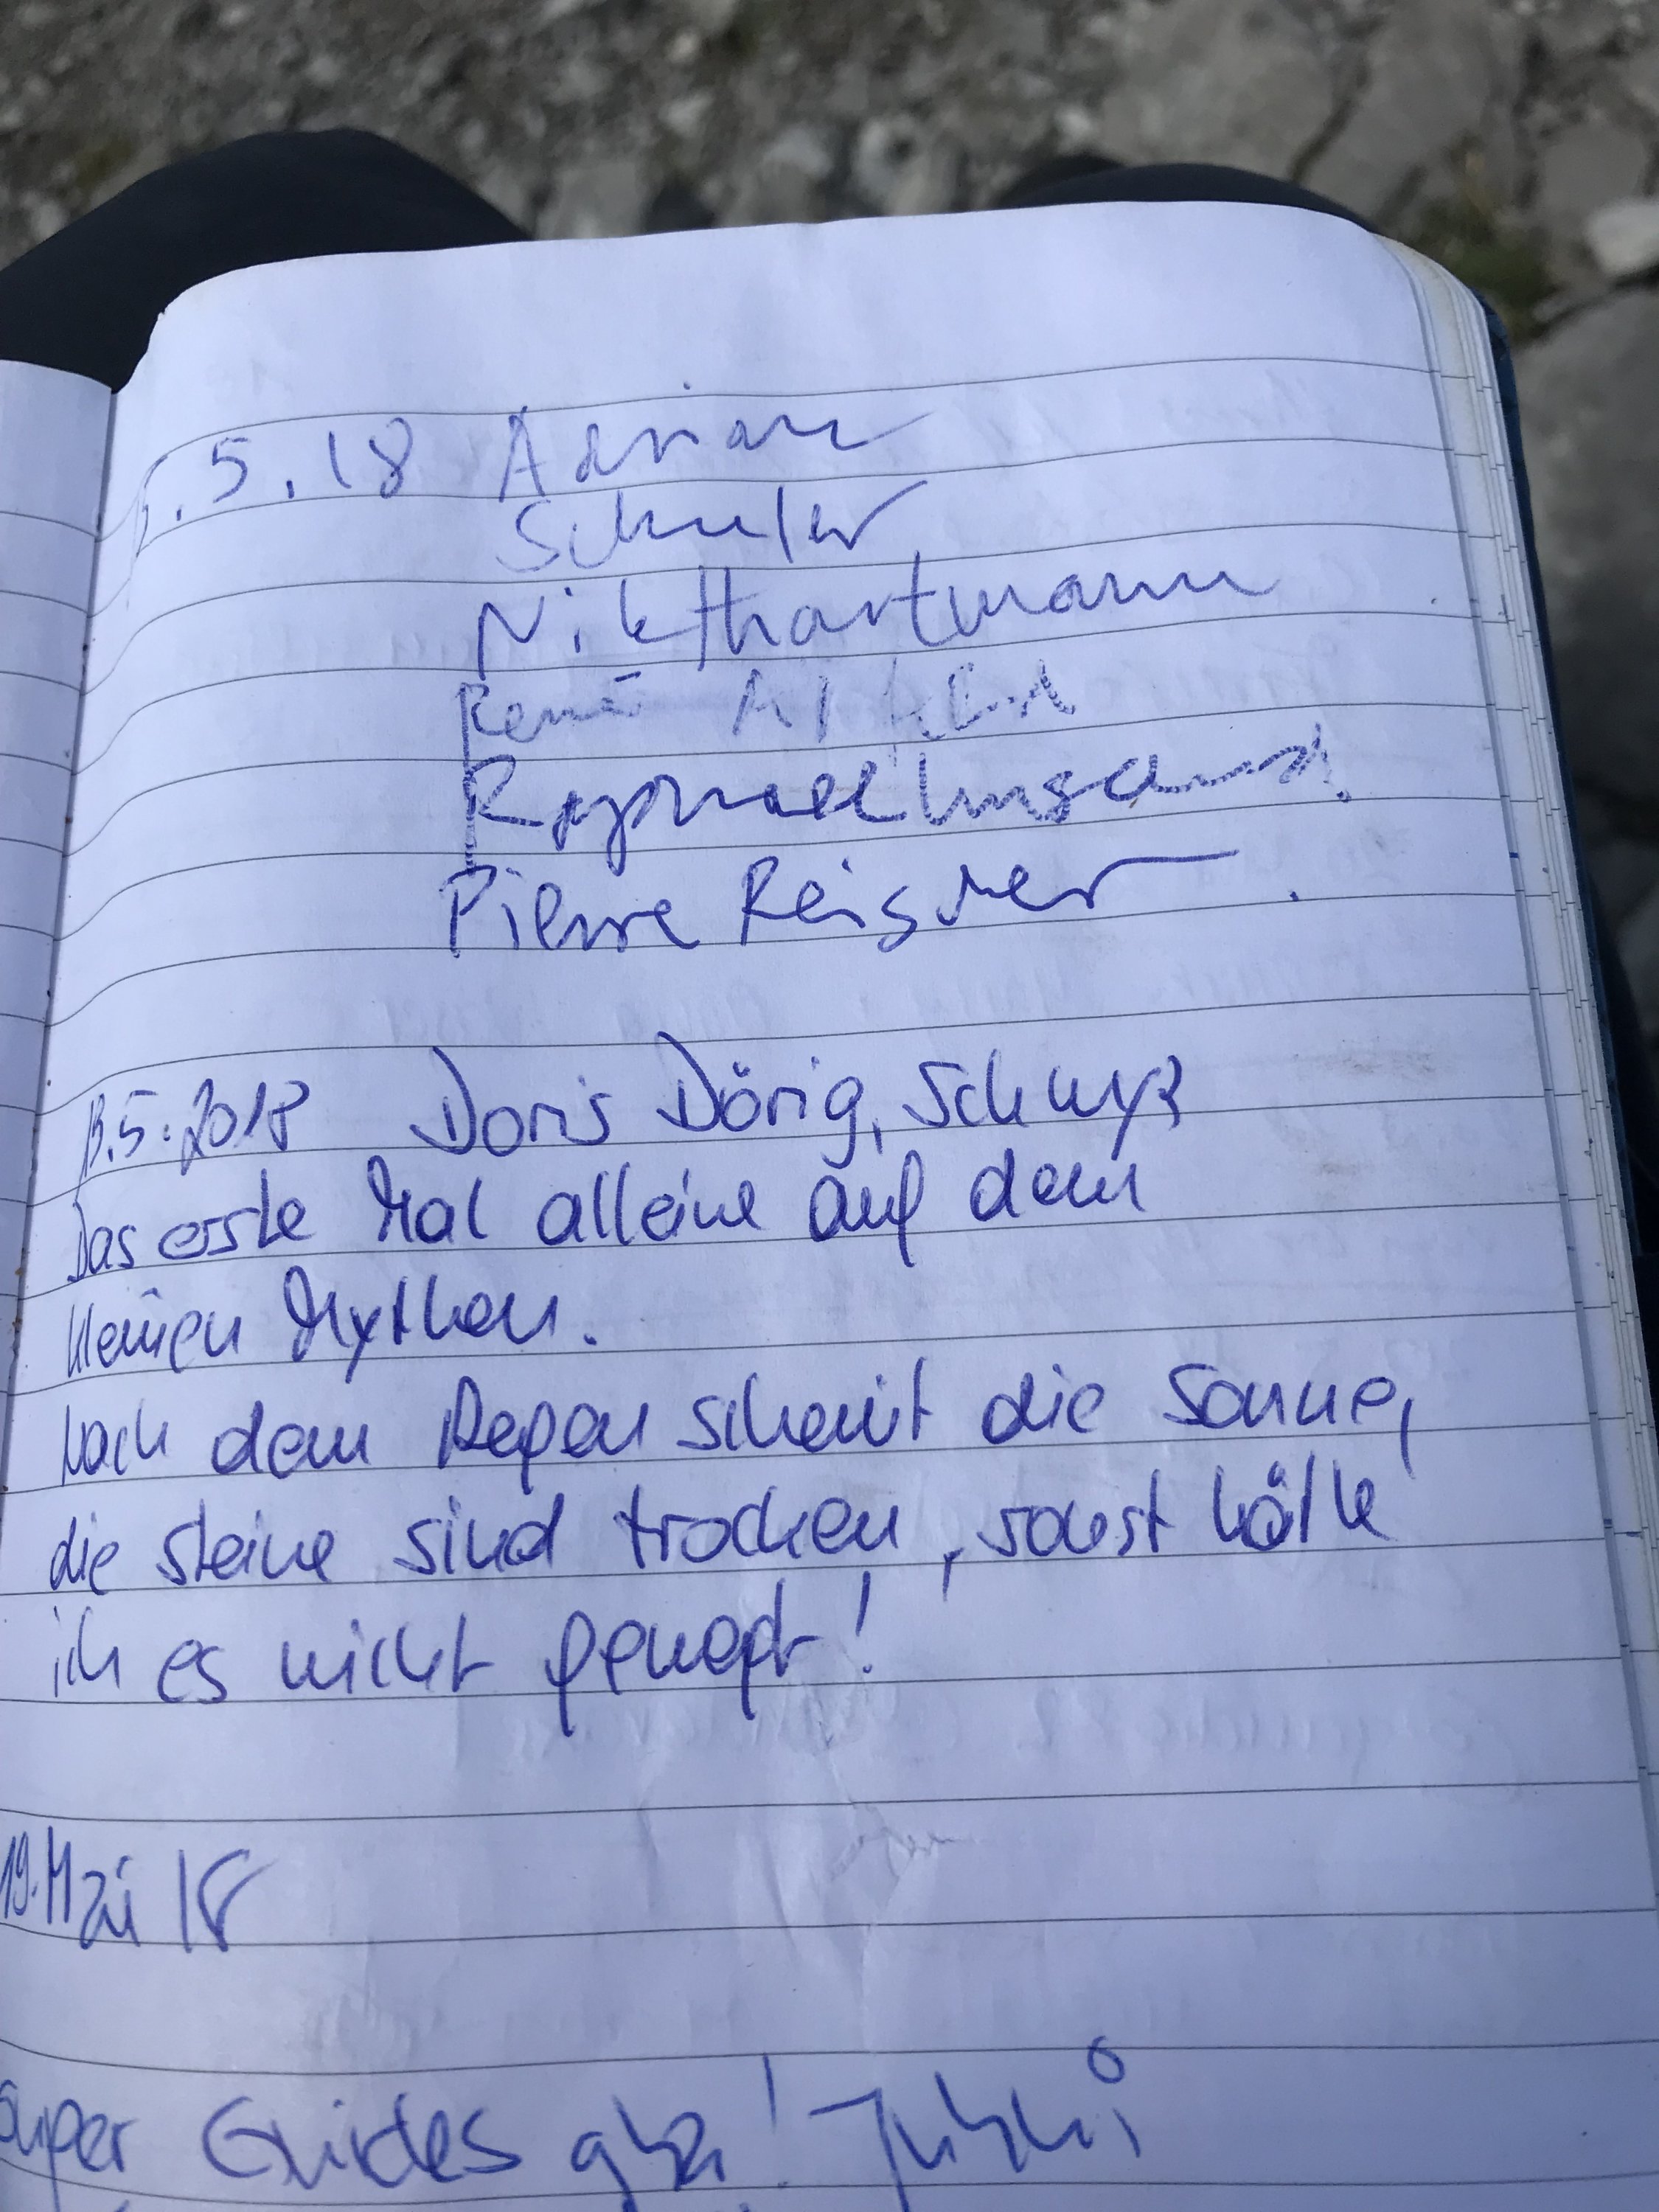 .5.18 Adrian
Schuler
Nik Hartmann
René
Raphael
Pierre
13.5.2018 Doris Dörig, Schwyz
Das erste Mal alleine auf dem
kleinen Mythen.
Nach dem Regen scheint die Sonne,
die Steine sind trocken, sonst hätte
ich es nicht gewagt!
19. Mai 18
super Guides gha! Juhui